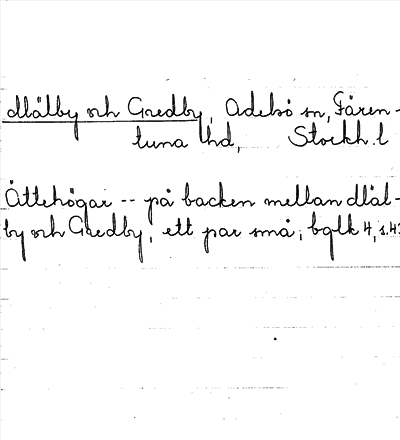 Mälby och Gredby, Adelsö sn, Fären-
tuna hd, Stockh. l
Ättehögar -- på backen mellan Mäl-
by och Gredby, ett par små; bglk 4, s. 4